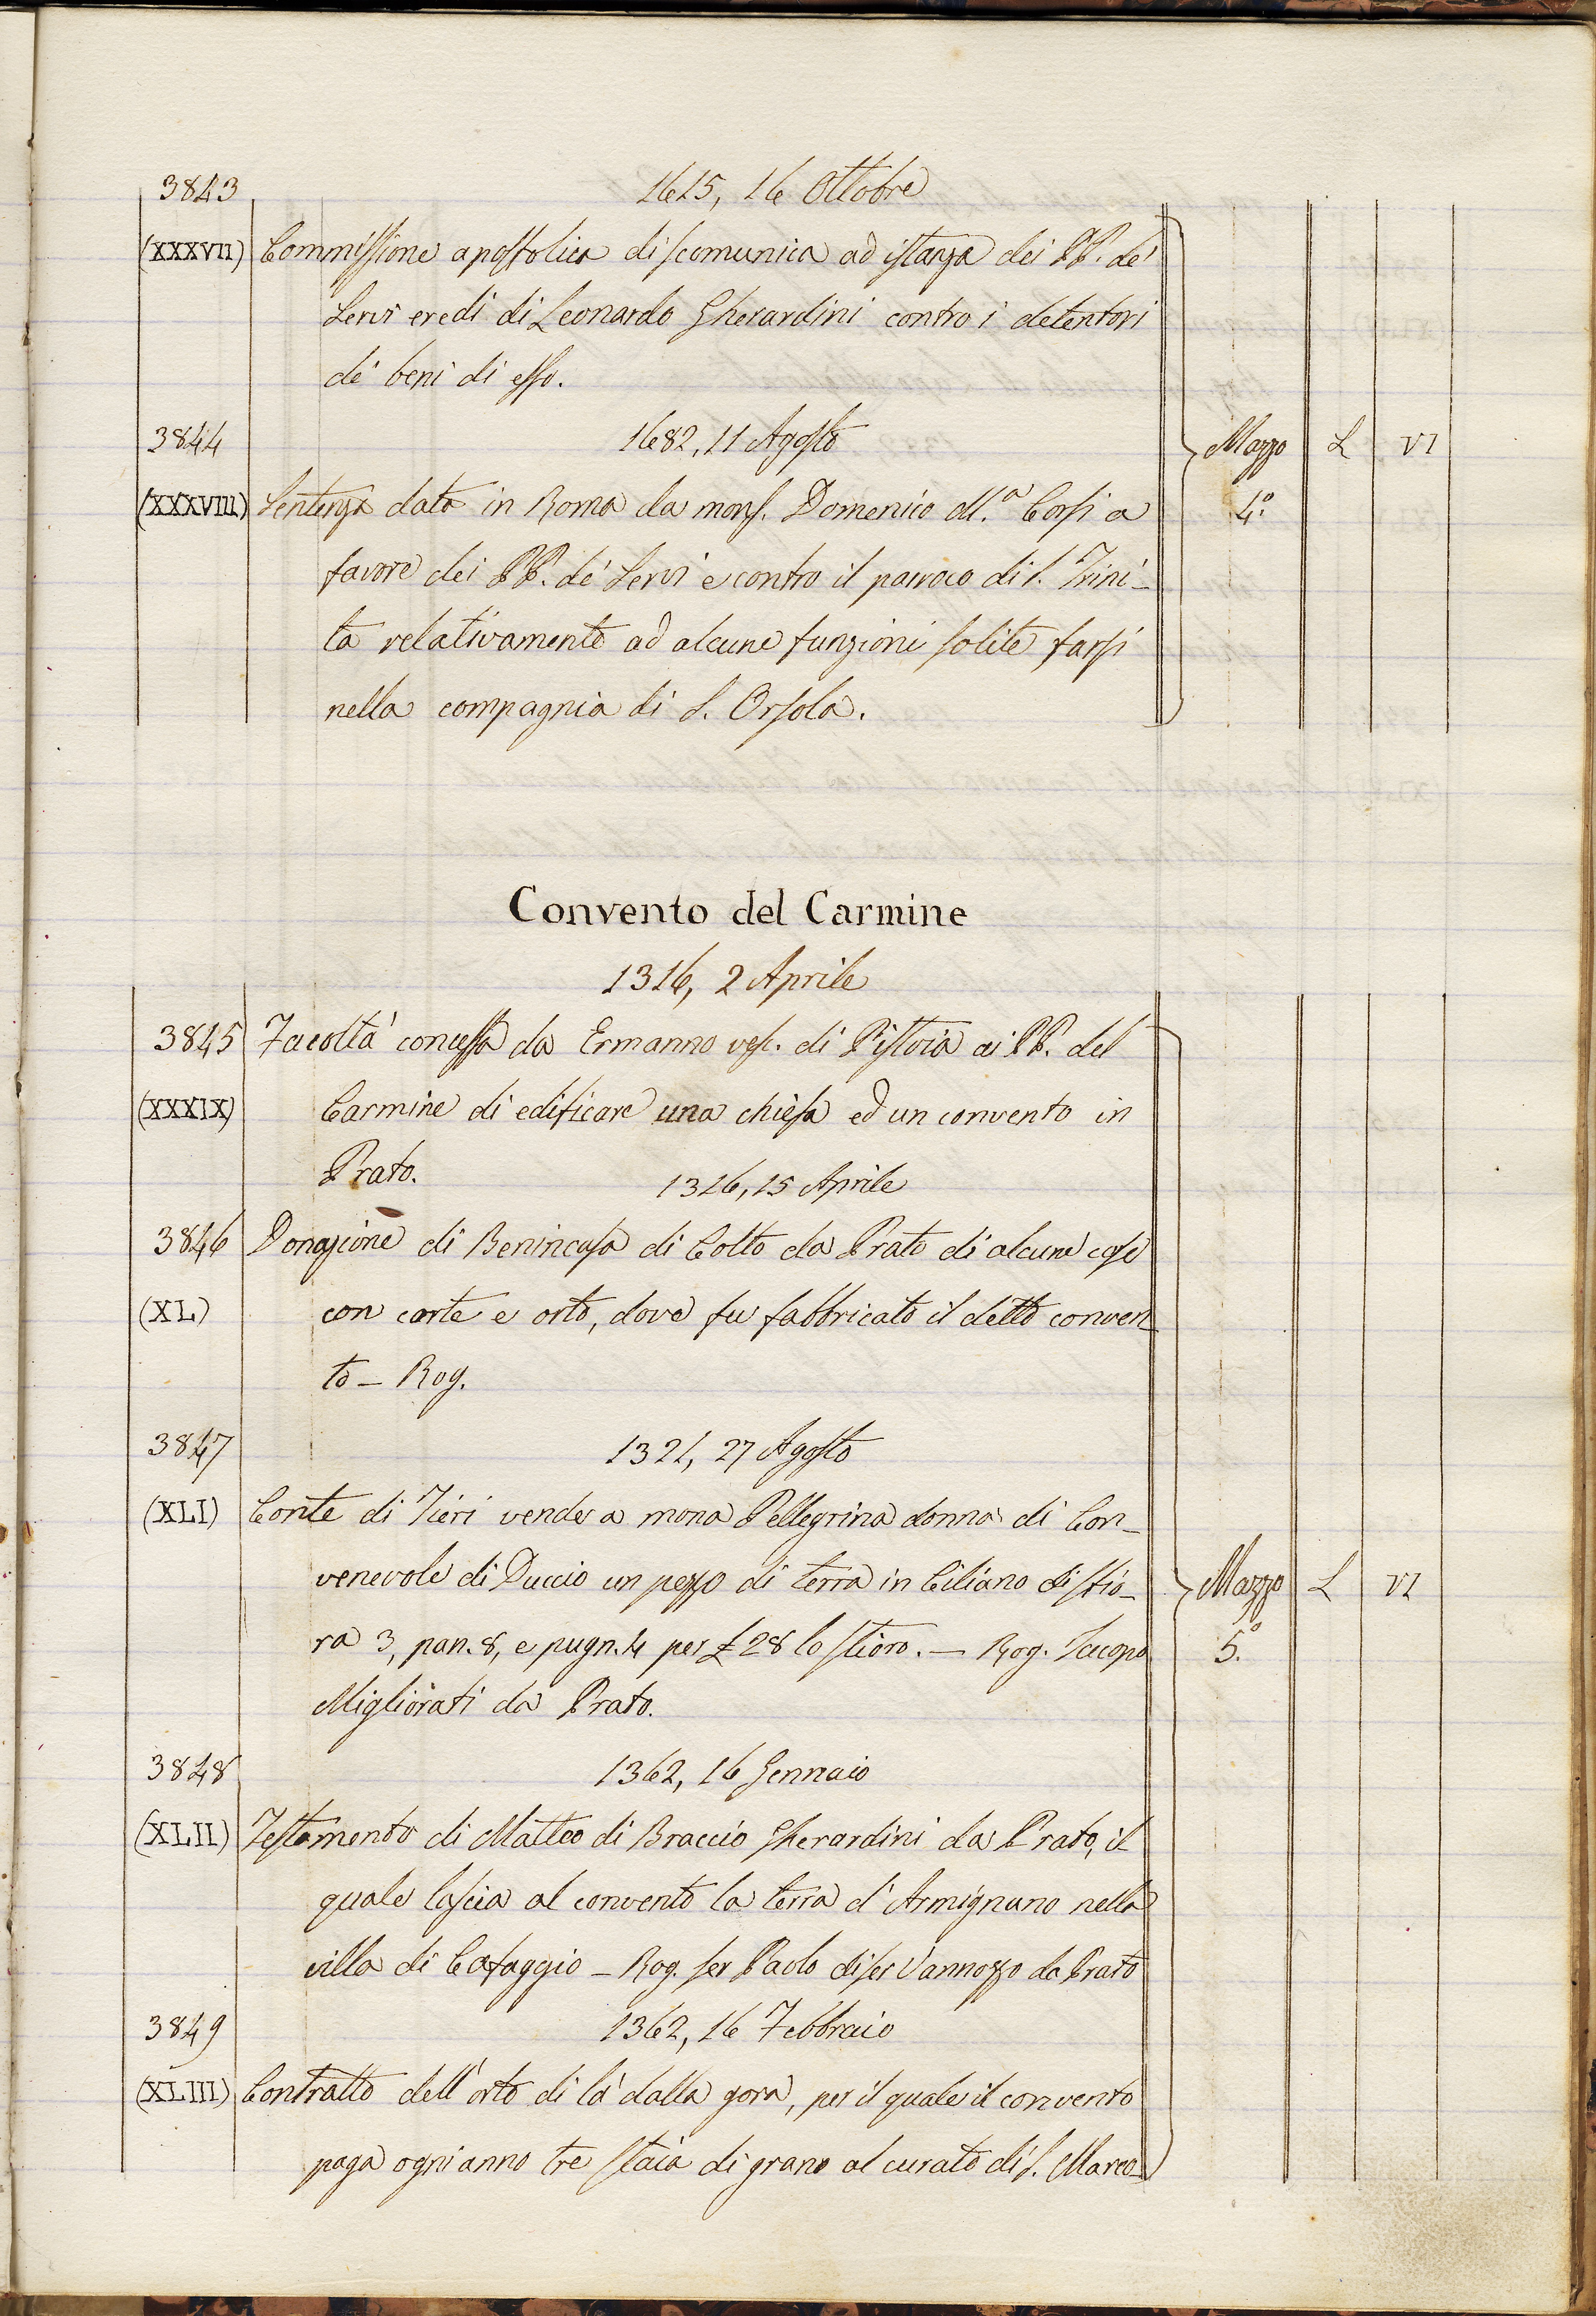 3843 1615, 16 Ottobre
(XXXVII) Commissione apostolica di scomunica ad istanza dei PP. de'
Servi eredi di Leonardo Gherardini contro i detentori
de' beni di esso.
3844 1682, 11 Agosto Mazzo L VI
(XXXVIII) Sentenza data in Roma da mons. Domenico M.a Corsi a 4.º
favore dei PP. de' Servi e contro il parroco di S. Trini-
ta relativamente ad alcune funzioni solite farsi
nella compagnia di S. Orsola.
Convento del Carmine
1316, 2 Aprile
3845 Facoltà concessa da Ermanno vesc. di Pistoia ai PP. del
(XXXIX) Carmine di edificare una chiesa ed un convento in
Prato. 1316, 15 Aprile
3846 Donazione di Benincasa di Cotto da Prato di alcune case
(XL) con corte e orto, dove fu fabbricato il detto conven-
to - Rog.
3847 1321, 27 Agosto
(XLI) Conte di Tieri vende a mona Pellegrina donna di Con-
venevole di Duccio un pezzo di terra in Ciliano di stio- Mazzo L VI
ra 3, pan. 8, e pugn. 4 per £ 28 lo stioro. - Rog. Iacopo 5.º
Migliorati da Prato.
3848 1362, 16 Gennaio
(XLII) Testamento di Matteo di Braccio Gherardini da Prato, il
quale lascia al convento la terra d'Armignano nella
villa di Cafaggio - Rog. ser Paolo di ser Vannozzo da Prato
3849 1362, 16 Febbraio
(XLIII) Contratto dell'orto di là dalla gora, per il quale il convento
paga ogni anno tre staia di grano al curato di S. Marco-